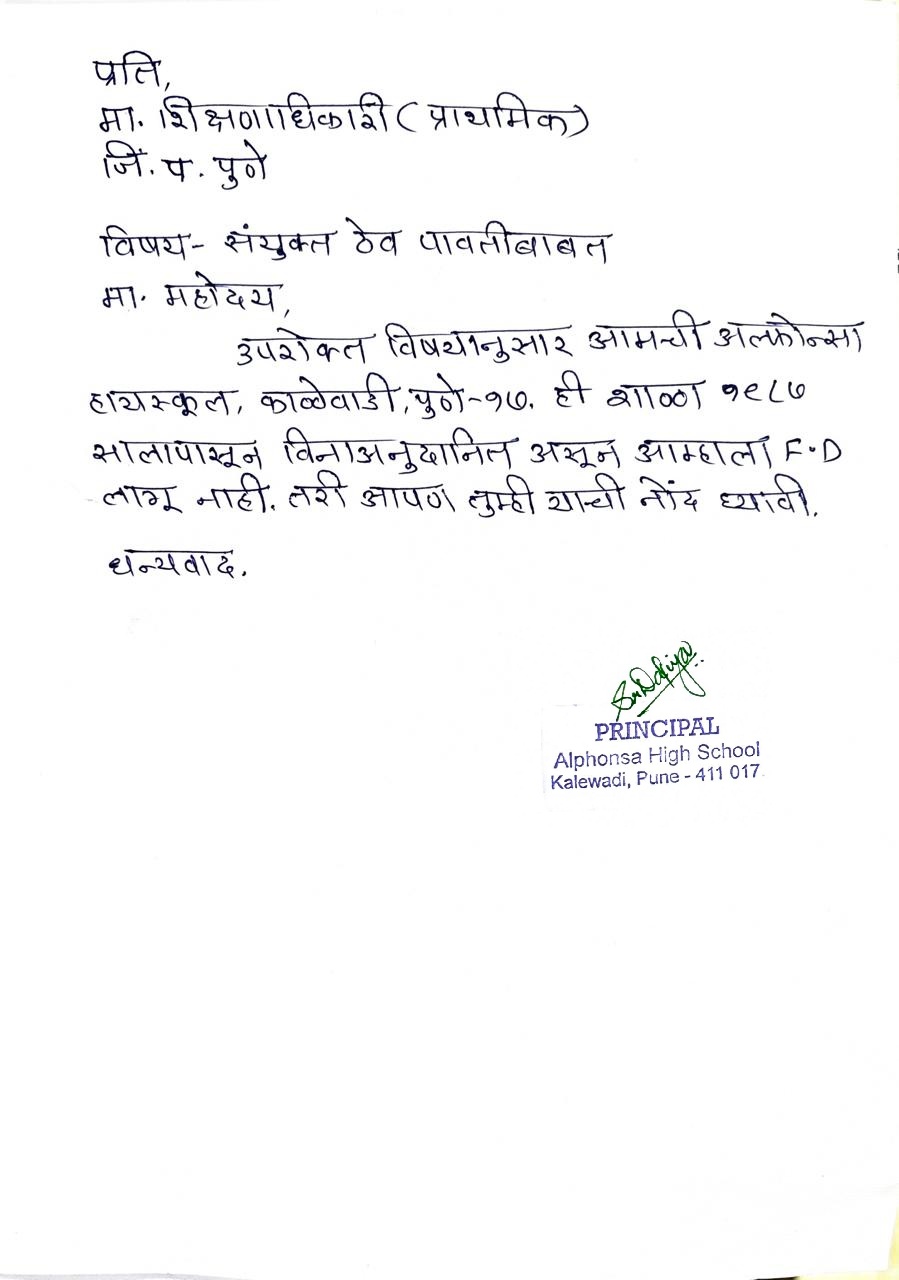 प्रति,
मा. शिक्षणाधिकारी (प्राथमिक)
जि. प. पुणे
विषय- संयुक्त ठेव पावतीबाबत
मा. महोदय,
उपरोक्त विषयानुसार आमची अल्फोन्सा
हायस्कूल, काळेवाडी, पुणे-१७. ही शाळा १९८७
सालापासून विनाअनुदानित असून आम्हाला F.D
लागू नाही. तरी आपण तुम्ही याची नोंद घ्यावी.
धन्यवाद.
PRINCIPAL
Alphonsa High School
Kalewadi, Pune - 411 017.